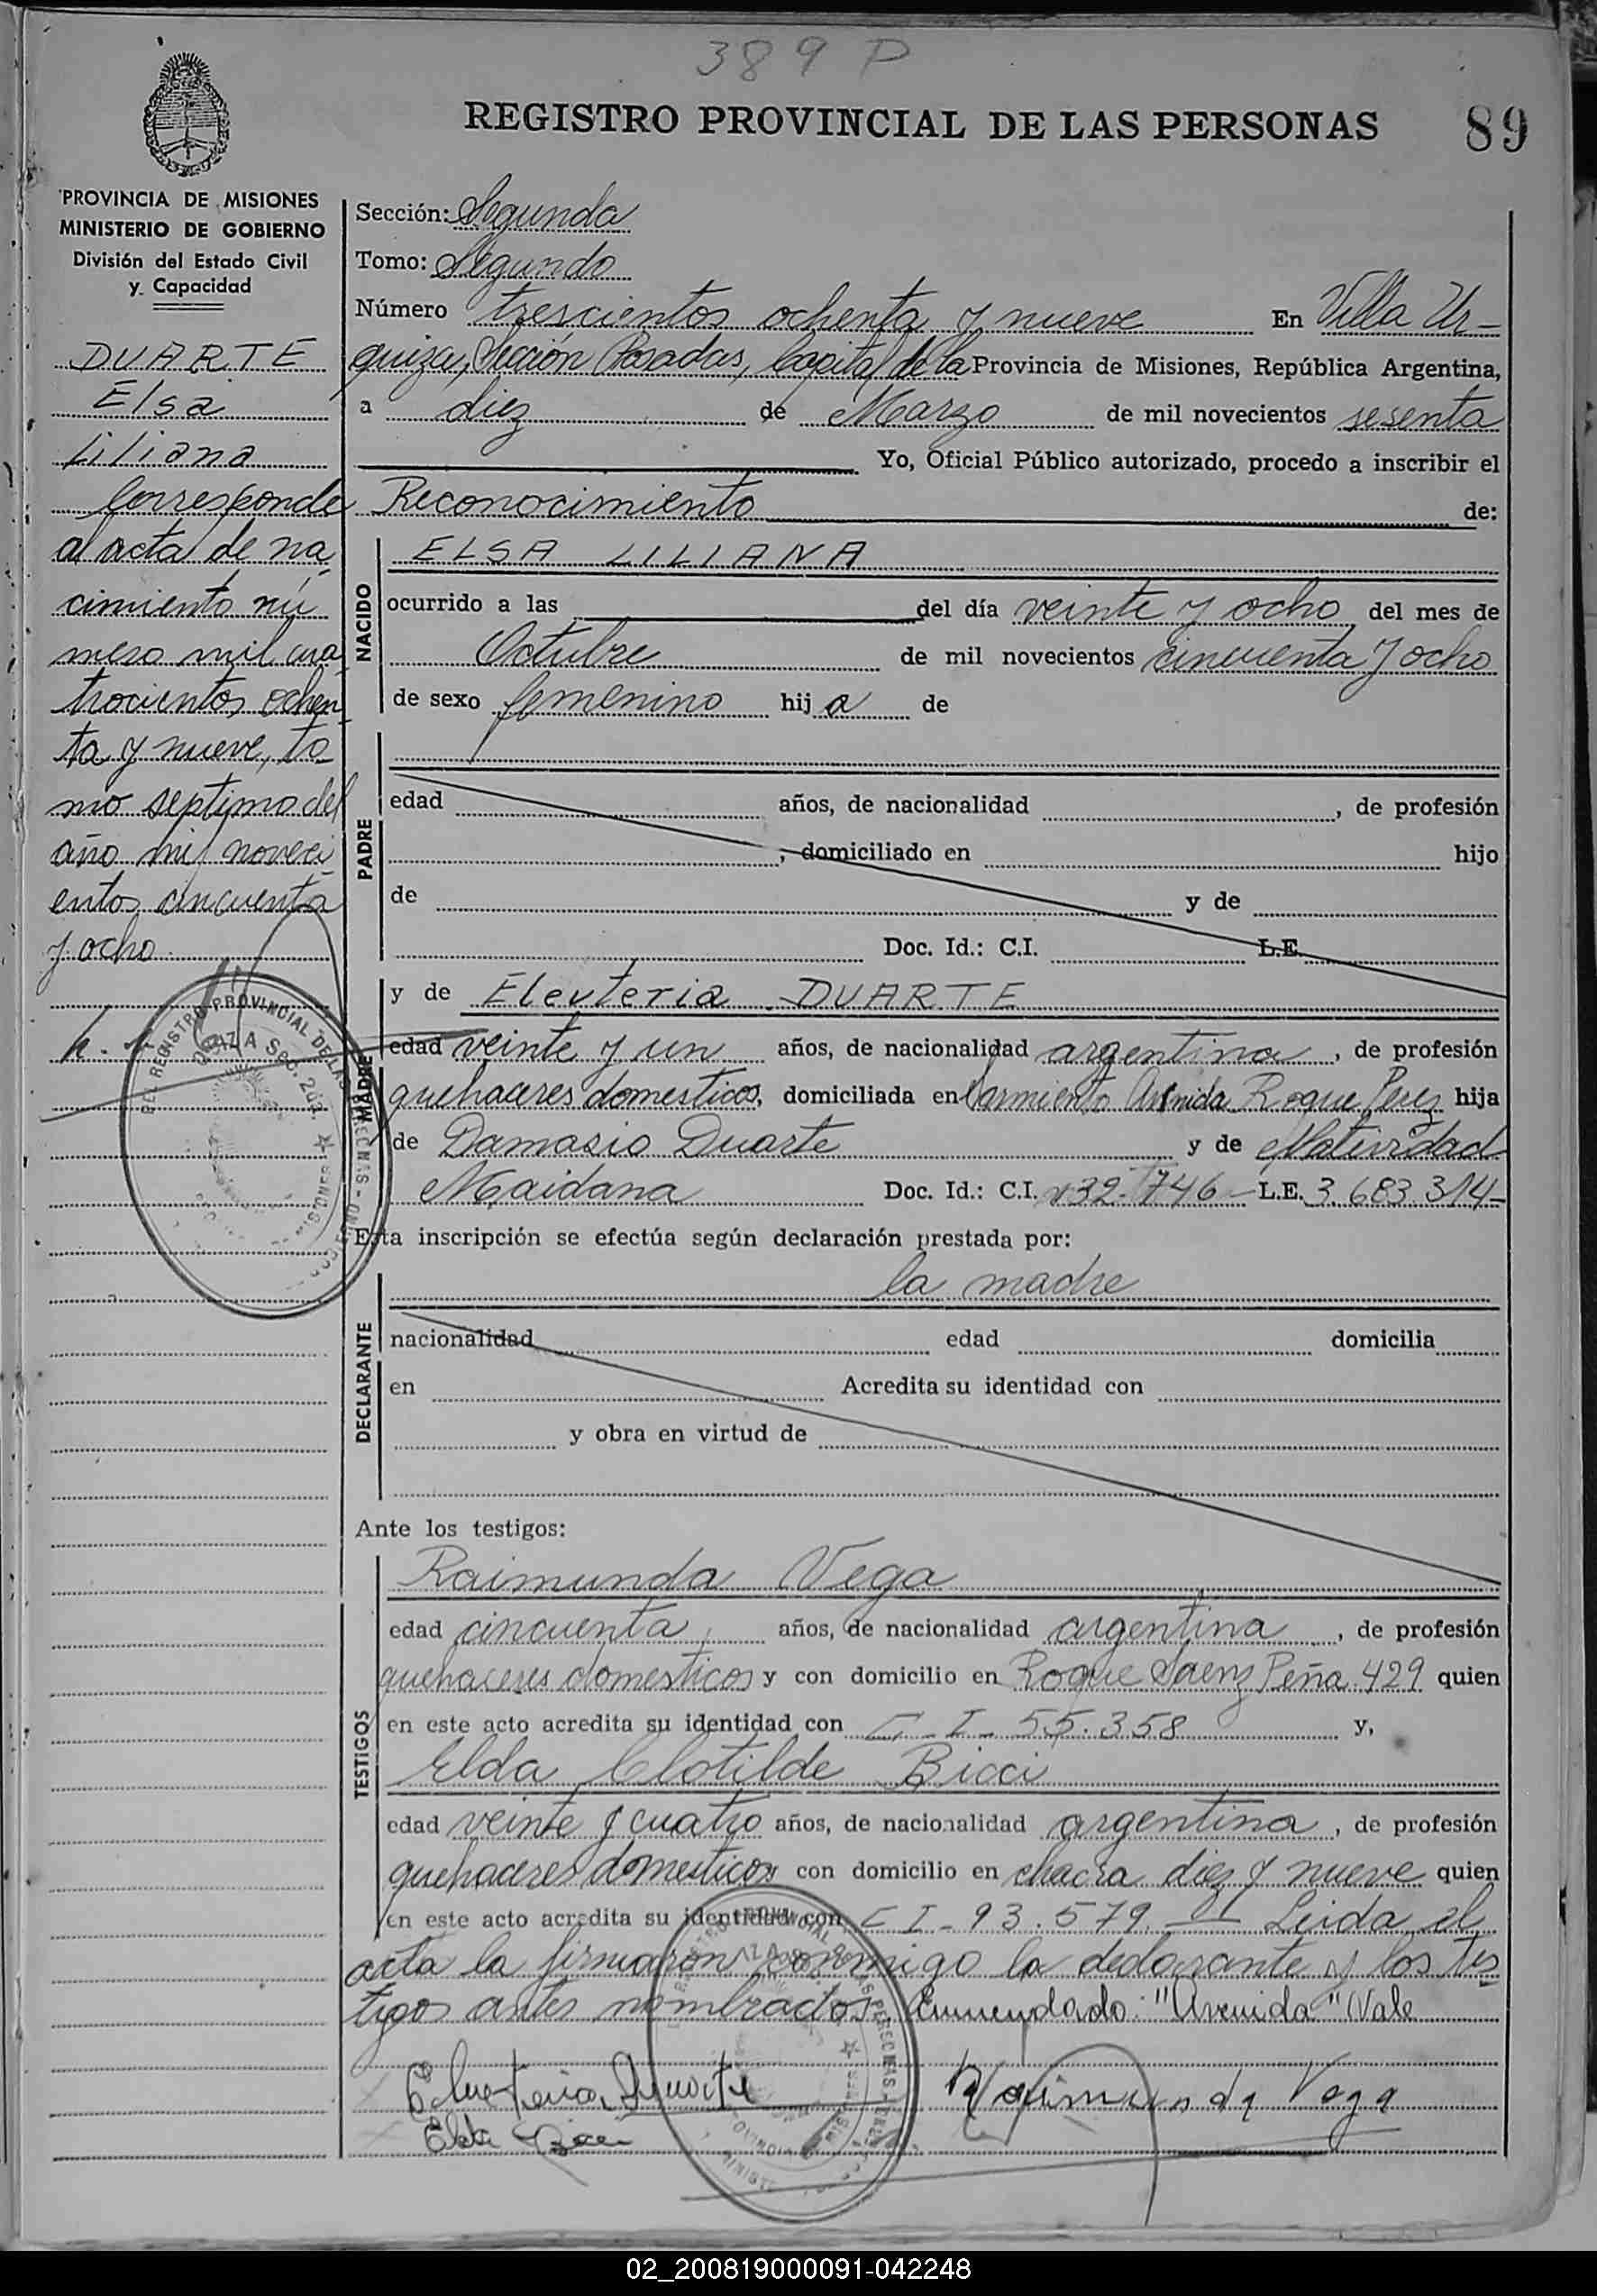 389 P
REGISTRO PROVINCIAL DE LAS PERSONAS
89
PROVINCIA DE MISIONES
MINISTERIO DE GOBIERNO
División del Estado Civil
y Capacidad
DUARTE
Elsa
Liliana
Corresponde
al acta de na
cimiento nú
mero mil cua
trocientos ochen
ta y nueve, to
mo septimo del
año mil noveci
entos cincuenta
y ocho
Sección: Segunda
Tomo: Segundo
Número trescientos ochenta y nueve En Villa Ur-
quiza, Sección Posadas, Capital de la Provincia de Misiones, República Argentina,
a diez de Marzo de mil novecientos sesenta
Yo, Oficial Público autorizado, procedo a inscribir el
Reconocimiento de:
NACIDO
ELSA LILIANA
ocurrido a las del día veinte y ocho del mes de
Octubre de mil novecientos cincuenta y ocho
de sexo femenino hija de
PADRE
edad años, de nacionalidad , de profesión
, domiciliado en hijo
de y de
Doc. Id.: C.I. L.E.
MADRE
y de Eleuteria DUARTE
edad veinte y un años, de nacionalidad argentina, de profesión
quehaceres domesticos, domiciliada en Sarmiento Avenida Roque Perez hija
de Damasio Duarte y de Natividad
Maidana Doc. Id.: C.I. 132.746 - L.E. 3.683.314-
Esta inscripción se efectúa según declaración prestada por:
la madre
DECLARANTE
nacionalidad edad domicilia
en Acredita su identidad con
y obra en virtud de
Ante los testigos:
TESTIGOS
Raimunda Vega
edad cincuenta, años, de nacionalidad argentina, de profesión
quehaceres domesticos y con domicilio en Roque Saenz Peña 429 quien
en este acto acredita su identidad con C I - 55.358 y,
Elda Clotilde Bicci
edad veinte y cuatro años, de nacionalidad argentina, de profesión
quehaceres domesticos y con domicilio en chacra diez y nueve quien
en este acto acredita su identidad con C I - 93.579. — Leida el
acta la firmaron conmigo la declarante y los tes
tigos antes nombrados. Enmendado: "Avenida" Vale
Eleuteria Duarte Raimunda Vega
Elda Bicci
02_200819000091-042248